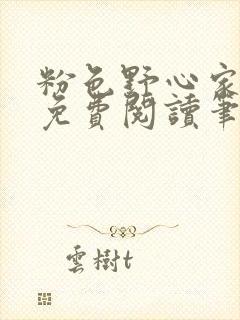 粉色野心家
免費閱讀筆
雲樹t